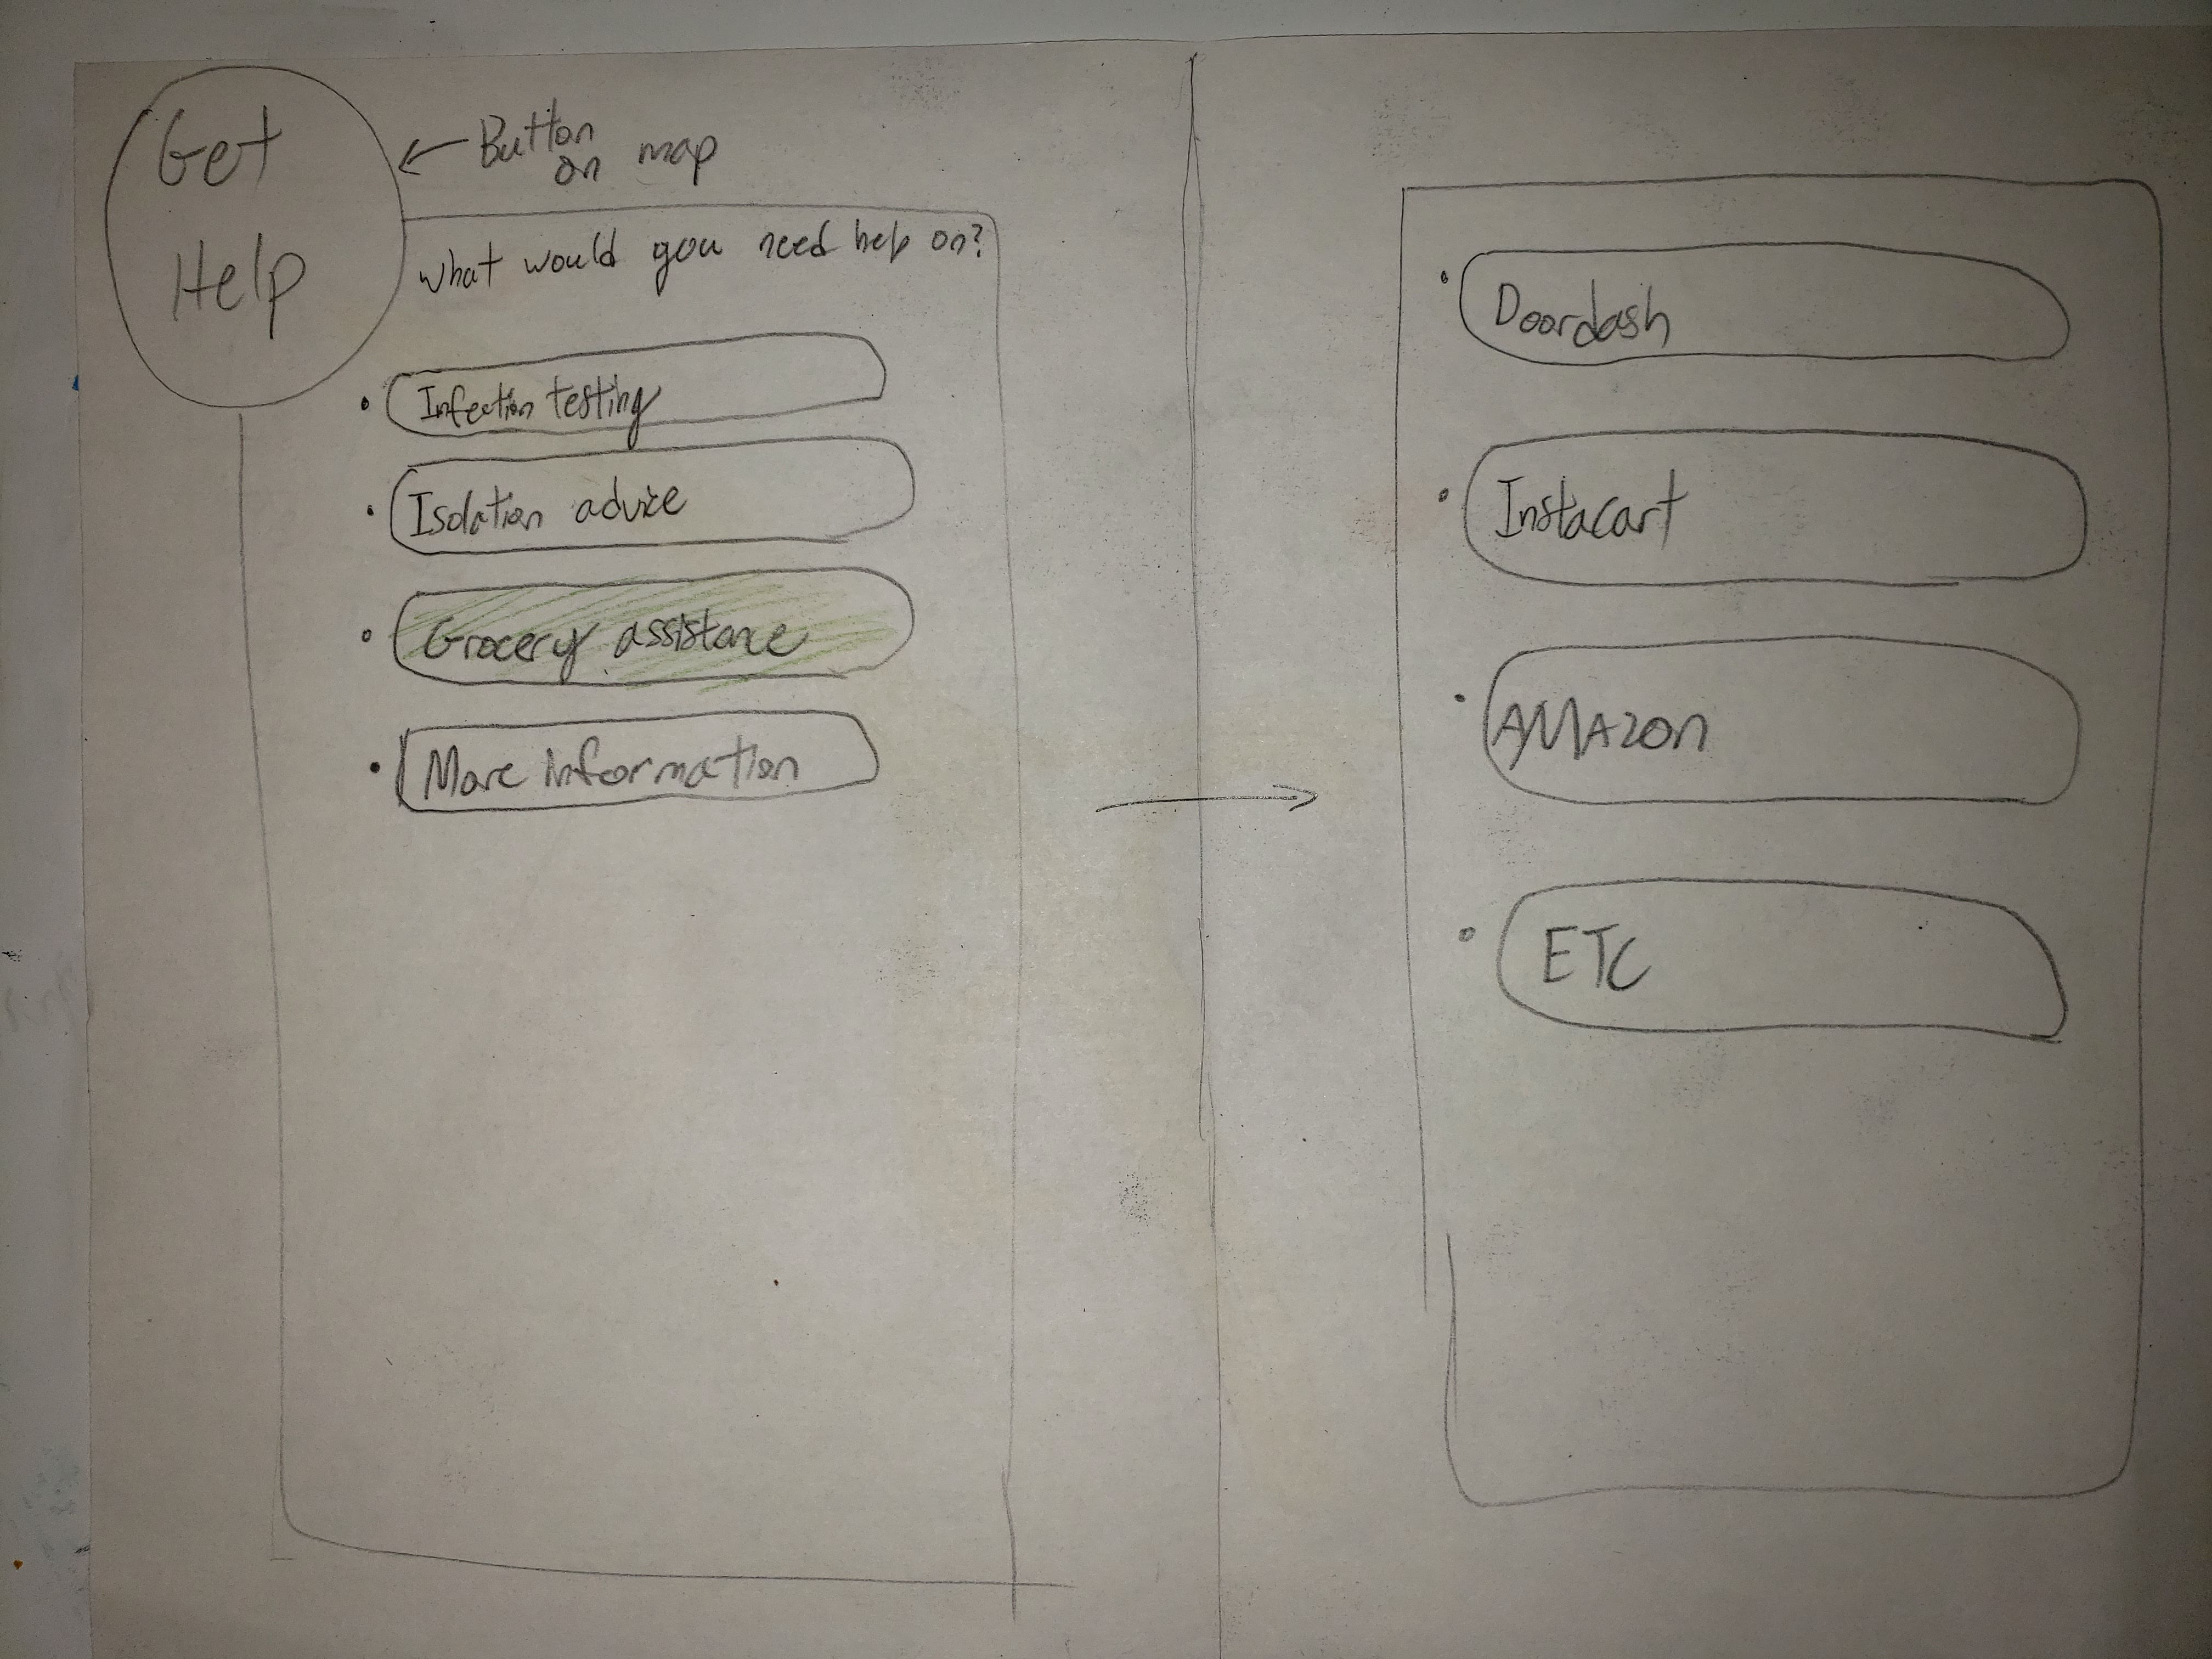 Get
Help
← Button
on map
What would you need help on?
• Infection testing
• Isolation advice
• Grocery assistance
• More information
• Doordash
• Instacart
• AMAzon
• ETC